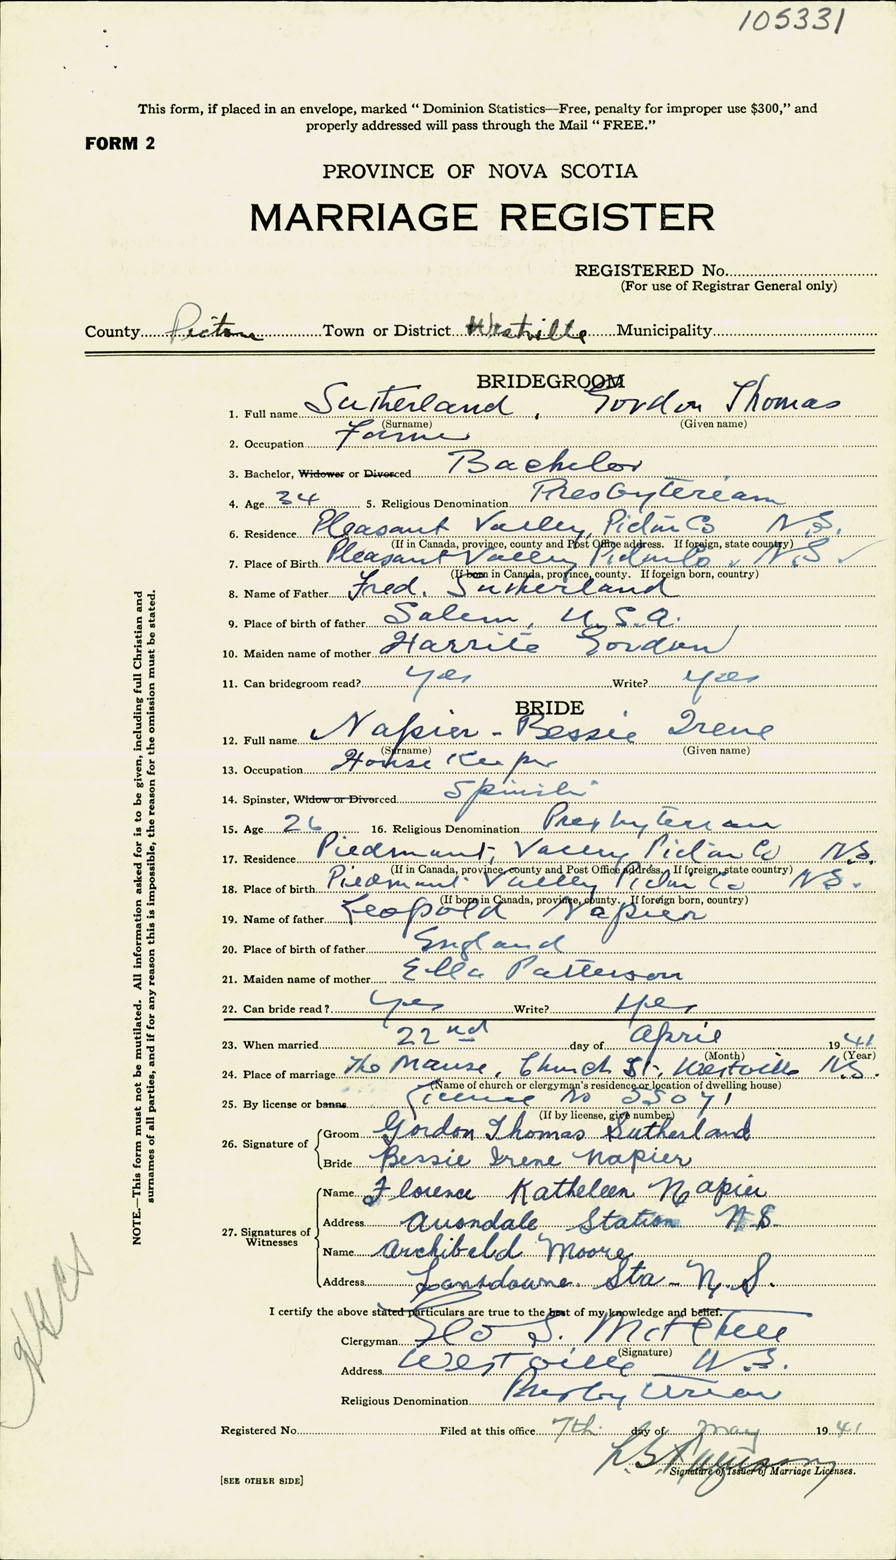 105331
This form, if placed in an envelope, marked “ Dominion Statistics—Free, penalty for improper use $300,” and
properly addressed will pass through the Mail “ FREE.”
FORM 2
PROVINCE OF NOVA SCOTIA
MARRIAGE REGISTER
REGISTERED No.
(For use of Registrar General only)
County Pictou Town or District Westville Municipality
BRIDEGROOM
1. Full name Sutherland, Gordon Thomas
(Surname) (Given name)
2. Occupation Farmer
3. Bachelor, Widower or Divorced Bachelor
4. Age 34 5. Religious Denomination Presbyteriam
6. Residence Pleasant Valley, Pictou Co N.S.
(If in Canada, province, county and Post Office address. If foreign, state country)
7. Place of Birth Pleasant Valley Pictou Co. N.S.
(If born in Canada, province, county. If foreign born, country)
8. Name of Father Fred. Sutherland
9. Place of birth of father Salem, U.S.A.
10. Maiden name of mother Harrite Gordon
11. Can bridegroom read? yes Write? yes
BRIDE
12. Full name Napier - Bessie Irene
(Surname) (Given name)
13. Occupation House Keeper
14. Spinster, Widow or Divorced Spinster
15. Age 26 16. Religious Denomination Presbyterian
17. Residence Piedmont, Valley Pictou Co N.S.
(If in Canada, province, county and Post Office address. If foreign, state country)
18. Place of birth Piedmont Valley Pictou Co N.S.
(If born in Canada, province, county. If foreign born, country)
19. Name of father Leopold Napier
20. Place of birth of father England
21. Maiden name of mother Ella Patterson
22. Can bride read? yes Write? yes
23. When married 22nd day of April 1941
(Month) (Year)
24. Place of marriage The Manse, Church St, Westville N.S.
(Name of church or clergyman's residence or location of dwelling house)
25. By license or banns License No 35071
(If by license, give number)
26. Signature of
Groom Gordon Thomas Sutherland
Bride Bessie Irene Napier
27. Signatures of Witnesses
Name Florence Katheleen Napier
Address Avondale Station N.S.
Name Archibald Moore
Address Lansdowne Sta - N.S.
I certify the above stated particulars are true to the best of my knowledge and belief.
Clergyman Geo S. Mitchell
(Signature)
Address Westville N.S.
Religious Denomination Presbyterian
Registered No. Filed at this office 7th day of May 1941
Signature of Issuer of Marriage Licenses.
[SEE OTHER SIDE]
NOTE.—This form must not be mutilated. All information asked for is to be given, including full Christian and
surnames of all parties, and if for any reason this is impossible, the reason for the omission must be stated.